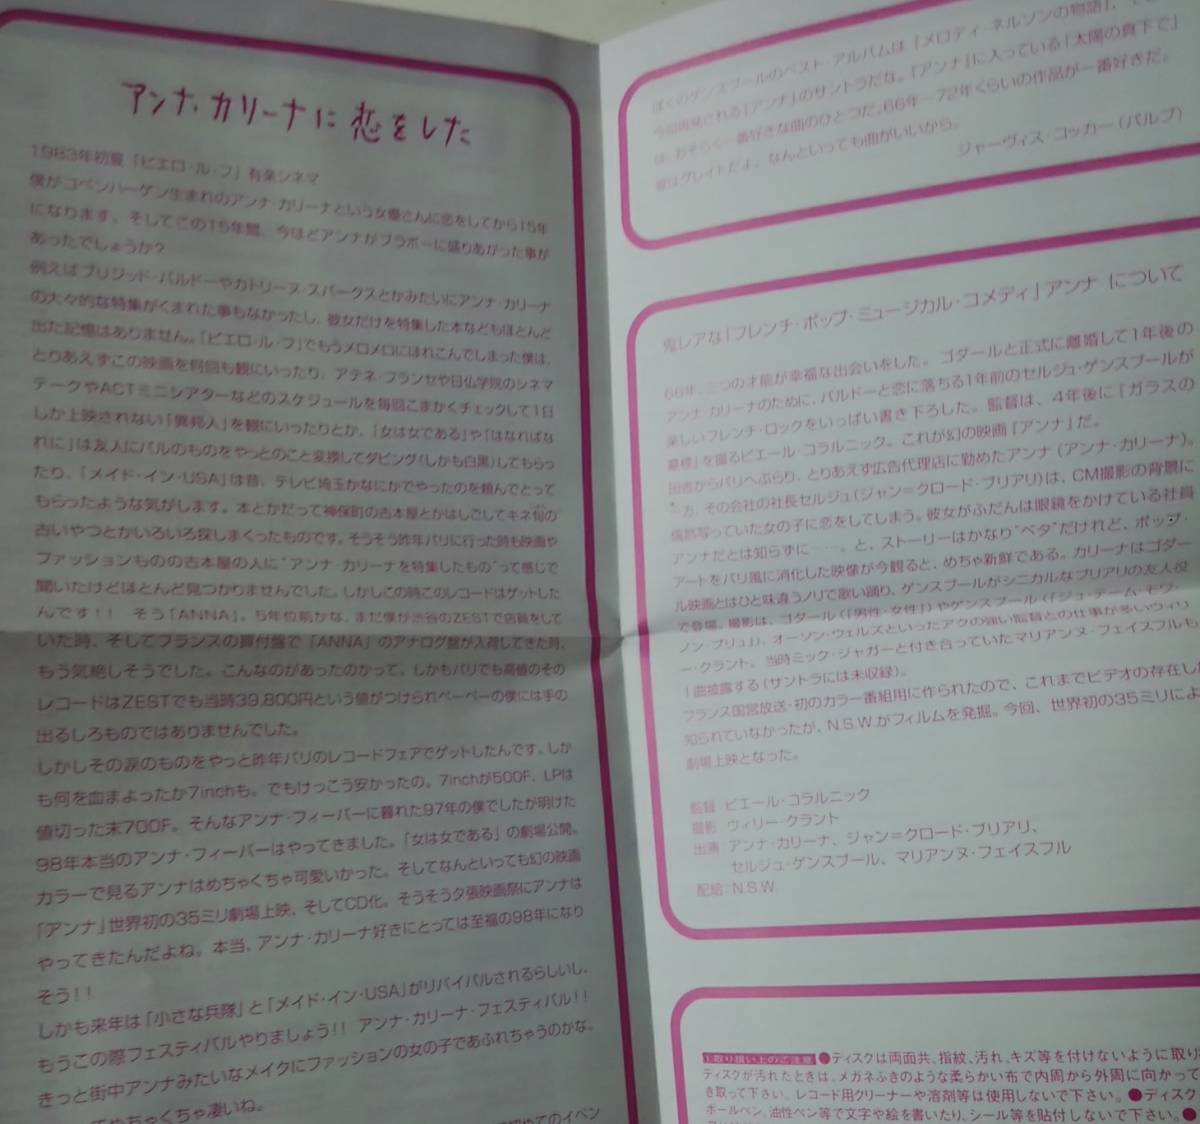 アンナ・カリーナに恋をした
1983年初夏「ピエロ・ル・フ」有楽シネマ
僕がコペンハーゲン生まれのアンナ・カリーナという女優さんに恋をしてから15年
になります。そしてこの15年間、今ほどアンナがブラボーに盛りあがった事が
あったでしょうか?
例えばブリジッド・バルドーやカトリーヌ・スパークスとかみたいにアンナ・カリーナ
の大々的な特集がくまれた事もなかったし、彼女だけを特集した本などもほとんど
出た記憶はありません。「ピエロ・ル・フ」でもうメロメロにほれこんでしまった僕は、
とりあえずこの映画を何回も観にいったり、アテネ・フランセや日仏学院のシネマ
テークやACTミニシアターなどのスケジュールを毎回こまかくチェックして1日
しか上映されない「異邦人」を観にいったりとか、「女は女である」や「はなればな
れに」は友人にパルのものをやっとのこと変換してダビング(しかも白黒)してもらっ
たり、「メイド・イン・USA」は昔、テレビ埼玉かなにかでやったのを頼んでとって
もらったような気がします。本とかだって神保町の古本屋とかはしごしてキネ旬の
古いやつとかいろいろ探しまくったものです。そうそう昨年パリに行った時も映画や
ファッションものの古本屋の人に“アンナ・カリーナを特集したもの”って感じで
聞いたけどほとんど見つかりませんでした。しかしこの時このレコードはゲットした
んです!! そう「ANNA」。5年位前かな、まだ僕が渋谷のZESTで店員をして
いた時、そしてフランスの買付盤で「ANNA」のアナログ盤が入荷してきた時、
もう気絶しそうでした。こんなのがあったのかって。しかもパリでも高値のその
レコードはZESTでも当時39,800円という値がつけられペーペーの僕には手の
出るしろものではありませんでした。
しかしその涙のものをやっと昨年パリのレコードフェアでゲットしたんです。しか
も何を血まよったか7inchも。でもけっこう安かったの。7inchが500F、LPは
値切った末700F。そんなアンナ・フィーバーに暮れた97年の僕でしたが明けた
98年本当のアンナ・フィーバーはやってきました。「女は女である」の劇場公開。
カラーで見るアンナはめちゃくちゃ可愛いかった。そしてなんといっても幻の映画
「アンナ」世界初の35ミリ劇場上映、そしてCD化。そうそう夕張映画祭にアンナは
やってきたんだよね。本当、アンナ・カリーナ好きにとっては至福の98年になり
そう!!
しかも来年は「小さな兵隊」と「メイド・イン・USA」がリバイバルされるらしいし、
もうこの際フェスティバルやりましょう!! アンナ・カリーナ・フェスティバル!!
きっと街中アンナみたいなメイクにファッションの女の子であふれちゃうのかな。
ちゃくちゃ凄いね。
てのイベン
ぼくのゲンスブールのベスト・アルバムは『メロディ・ネルソンの物語』、
今回再発される『アンナ』のサントラだな。『アンナ』に入っている「太陽の真下で」
は、おそらく一番好きな曲のひとつだ。66年〜72年くらいの作品が一番好きだ。
彼はグレイトだよ、なんといっても曲がいいから。
ジャーヴィス・コッカー(パルプ)
鬼レアな「フレンチ・ポップ・ミュージカル・コメディ」アンナ について
66年、三つの才能が幸福な出会いをした。ゴダールと正式に離婚して1年後の
アンナ・カリーナのために、バルドーと恋に落ちる1年前のセルジュ・ゲンスブールが
楽しいフレンチ・ロックをいっぱい書き下ろした。監督は、4年後に『ガラスの
墓標』を撮るピエール・コラルニック。これが幻の映画『アンナ』だ。
田舎からパリへぶらり、とりあえず広告代理店に勤めたアンナ(アンナ・カリーナ)。
一方、その会社の社長セルジュ(ジャン=クロード・ブリアリ)は、CM撮影の背景に
偶然写っていた女の子に恋をしてしまう。彼女がふだんは眼鏡をかけている社員
アンナだとは知らずに……。と、ストーリーはかなり“ベタ”だけれど、ポップ・
アートをパリ風に消化した映像が今観ると、めちゃ新鮮である。カリーナはゴダー
ル映画とはひと味違うノリで歌い踊り、ゲンスブールがシニカルなブリアリの友人役
で登場。撮影は、ゴダール(『男性・女性』)やゲンスブール(『ジュ・テーム・モワ・
ノン・プリュ』)、オーソン・ウェルズといったアクの強い監督との仕事が多いウィリ
ー・クラント。当時ミック・ジャガーと付き合っていたマリアンヌ・フェイスフルも
1曲披露する(サントラには未収録)。
フランス国営放送・初のカラー番組用に作られたので、これまでビデオの存在し
知られていなかったが、N.S.W.がフィルムを発掘。今回、世界初の35ミリによ
劇場上映となった。
監督 ピエール・コラルニック
撮影 ウィリー・クラント
出演 アンナ・カリーナ、ジャン=クロード・ブリアリ、
セルジュ・ゲンスブール、マリアンヌ・フェイスフル
配給 N.S.W
取り扱い上のご注意 ●ディスクは両面共、指紋、汚れ、キズ等を付けないように取り
ディスクが汚れたときは、メガネふきのような柔らかい布で内周から外周に向かって
き取って下さい。レコード用クリーナーや溶剤等は使用しないで下さい。●ディスク
ボールペン、油性ペン等で文字や絵を書いたり、シール等を貼付しないで下さい。●